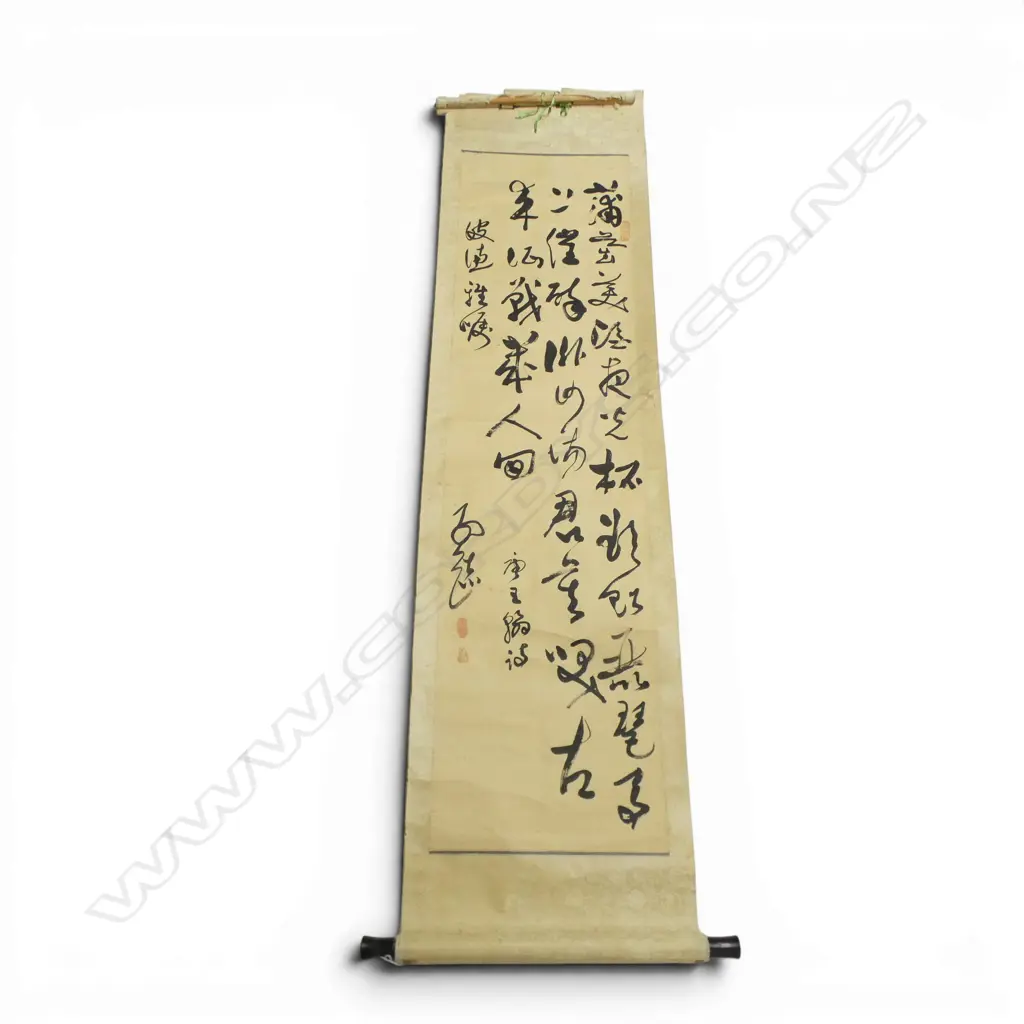 蒲萄美酒夜光杯欲飲琵琶馬
上催醉臥沙場君莫咲古
来征戰幾人回
唐王翰詩
雅嘱
WWW.CORDYS.CO.NZ